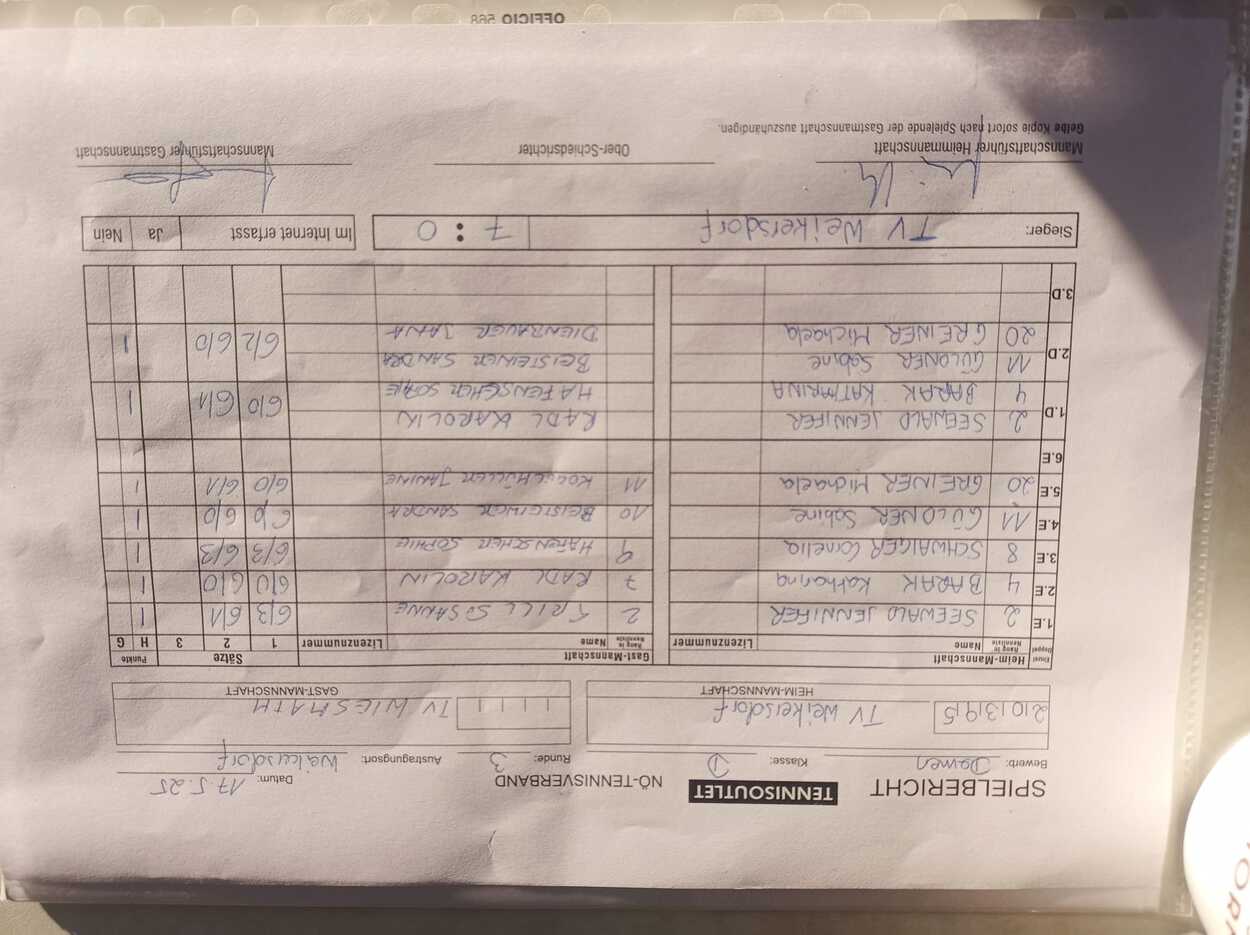 SPIELBERICHT TENNISOUTLET NÖ-TENNISVERBAND Datum: 17.5.25
Bewerb: Damen Klasse: D Runde: 3 Austragungsort: Weikersdorf
2|0|3|9|5 TV Weikersdorf TV WIESMATH
HEIM-MANNSCHAFT GAST-MANNSCHAFT
Einzel Doppel Heim-Mannschaft Gast-Mannschaft Sätze Punkte
Rang in Nennliste Name Lizenznummer Rang in Nennliste Name Lizenznummer 1 2 3 H G
1.E 2 SEEWALD JENNIFER 2 TRILL SUSANNE 6/3 6/1 1
2.E 4 BARAK Katharina 7 RADL KAROLIN 6/0 6/0 1
3.E 8 SCHWAIGER Cornelia 9 HAFENSCHER SOPHIE 6/3 6/3 1
4.E 11 GÜLDNER Sabine 10 BEISTEINER SANDRA 6/0 6/0 1
5.E 20 GREINER Michaela 11 JANINE 6/0 6/1 1
6.E
1.D 2 SEEWALD JENNIFER RADL KAROLIN 6/0 6/1 1
4 BARAK KATHARINA HAFENSCHER SOFIE
2.D 11 GÜLDNER Sabine BEISTEINER SANDRA 6/2 6/0 1
20 GREINER Michaela JANA
3.D
Sieger: TV Weikersdorf 7 : 0 Im Internet erfasst Ja Nein
Mannschaftsführer Heimmannschaft Ober-Schiedsrichter Mannschaftsführer Gastmannschaft
Gelbe Kopie sofort nach Spielende der Gastmannschaft auszuhändigen.
OFFICIO 568